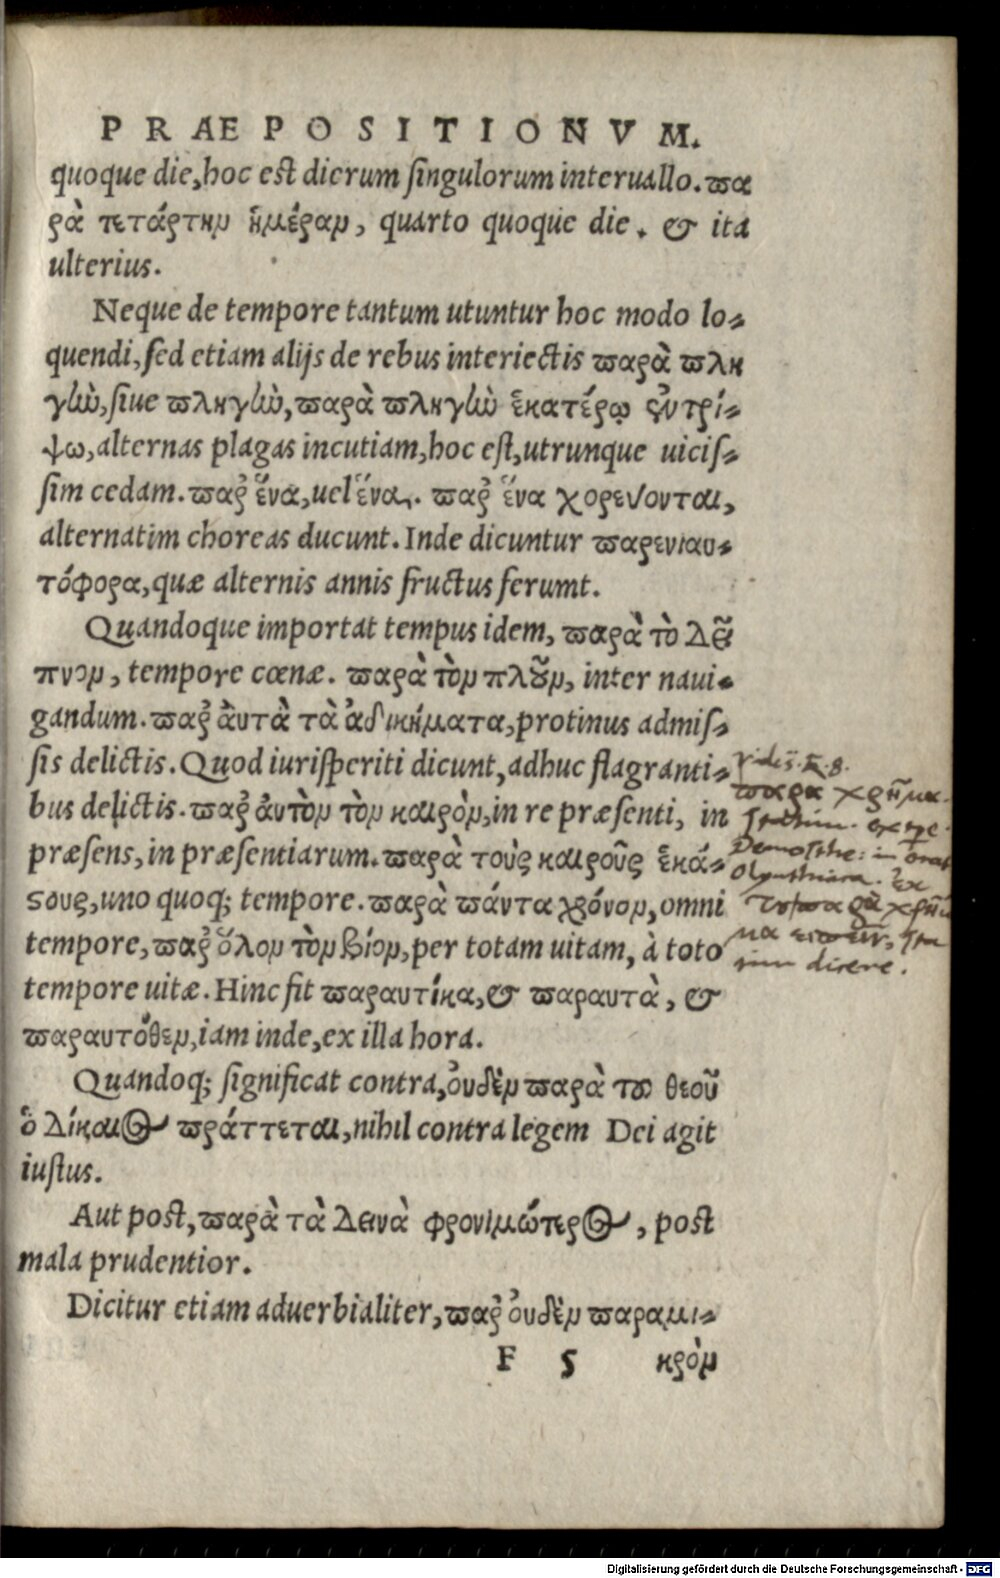 PRÆPOSITIONVM.
quoque die, hoc est dierum singulorum interuallo. πα
ρὰ τετάρτην ἡμέραν, quarto quoque die. & ita
ulterius.
Neque de tempore tantum utuntur hoc modo lo-
quendi, sed etiam alijs de rebus interiectis παρὰ πλη
γὴν, siue πληγὴν, παρὰ πληγὴν ἑκατέρῳ ἐντρί-
ψω, alternas plagas incutiam, hoc est, utrunque uicis-
sim cedam. παρ ἕνα, uel ἕνα, παρ ἕνα χορεύονται,
alternatim choreas ducunt. Inde dicuntur παρενιαυ-
τόφορα, quæ alternis annis fructus ferunt.
Quandoque importat tempus idem, παρὰ τὸ δεῖ
πνον, tempore cœnæ. παρὰ τὸν πλοῦν, inter naui-
gandum. παρ ἀυτὰ τὰ ἀδικήματα, protinus admis-
sis delictis. Quod iurisperiti dicunt, adhuc flagranti-
bus delictis. παρ ἀυτὸν τὸν καιρὸν, in re præsenti, in
præsens, in præsentiarum. παρὰ τοὺς καιροῦς ἑκά-
στους, uno quoq; tempore. παρὰ πάντα χρόνον, omni
tempore, παρ ὅλον τὸν βίον, per totam uitam, à toto
tempore uitæ. Hinc fit παραυτίκα, & παραυτὰ, &
παραυτόθεν, iam inde, ex illa hora.
Quandoq; significat contra, ὀυδὲν παρὰ του θεοῦ
ὁ δίκαιος πράττεται, nihil contra legem Dei agit
iustus.
Aut post, παρὰ τὰ δεινὰ φρονιμώτερος, post
mala prudentior.
Dicitur etiam aduerbialiter, παρ ὀυδὲν παραμι-
F 5 κρὸν
παρα χρῆμα.
Demosthe: in orat
Olynthiaca. Ex
παρὰ χρῆ
μα
dicere.
Digitalisierung gefördert durch die Deutsche Forschungsgemeinschaft - DFG